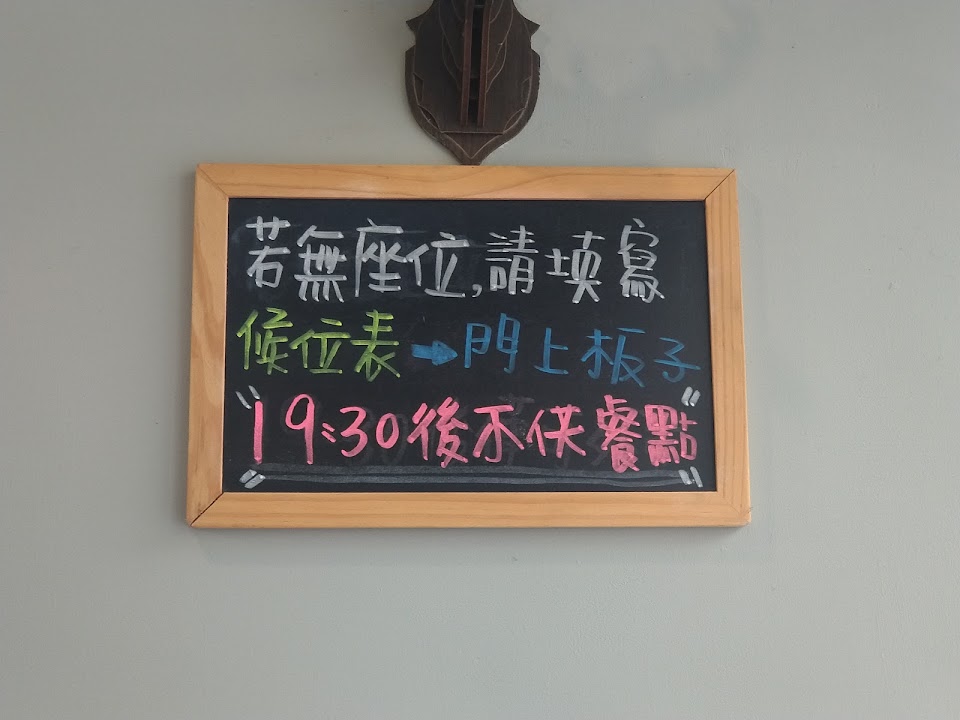 若無座位,請填寫
候位表➡門上板子
"19:30後不供餐點"